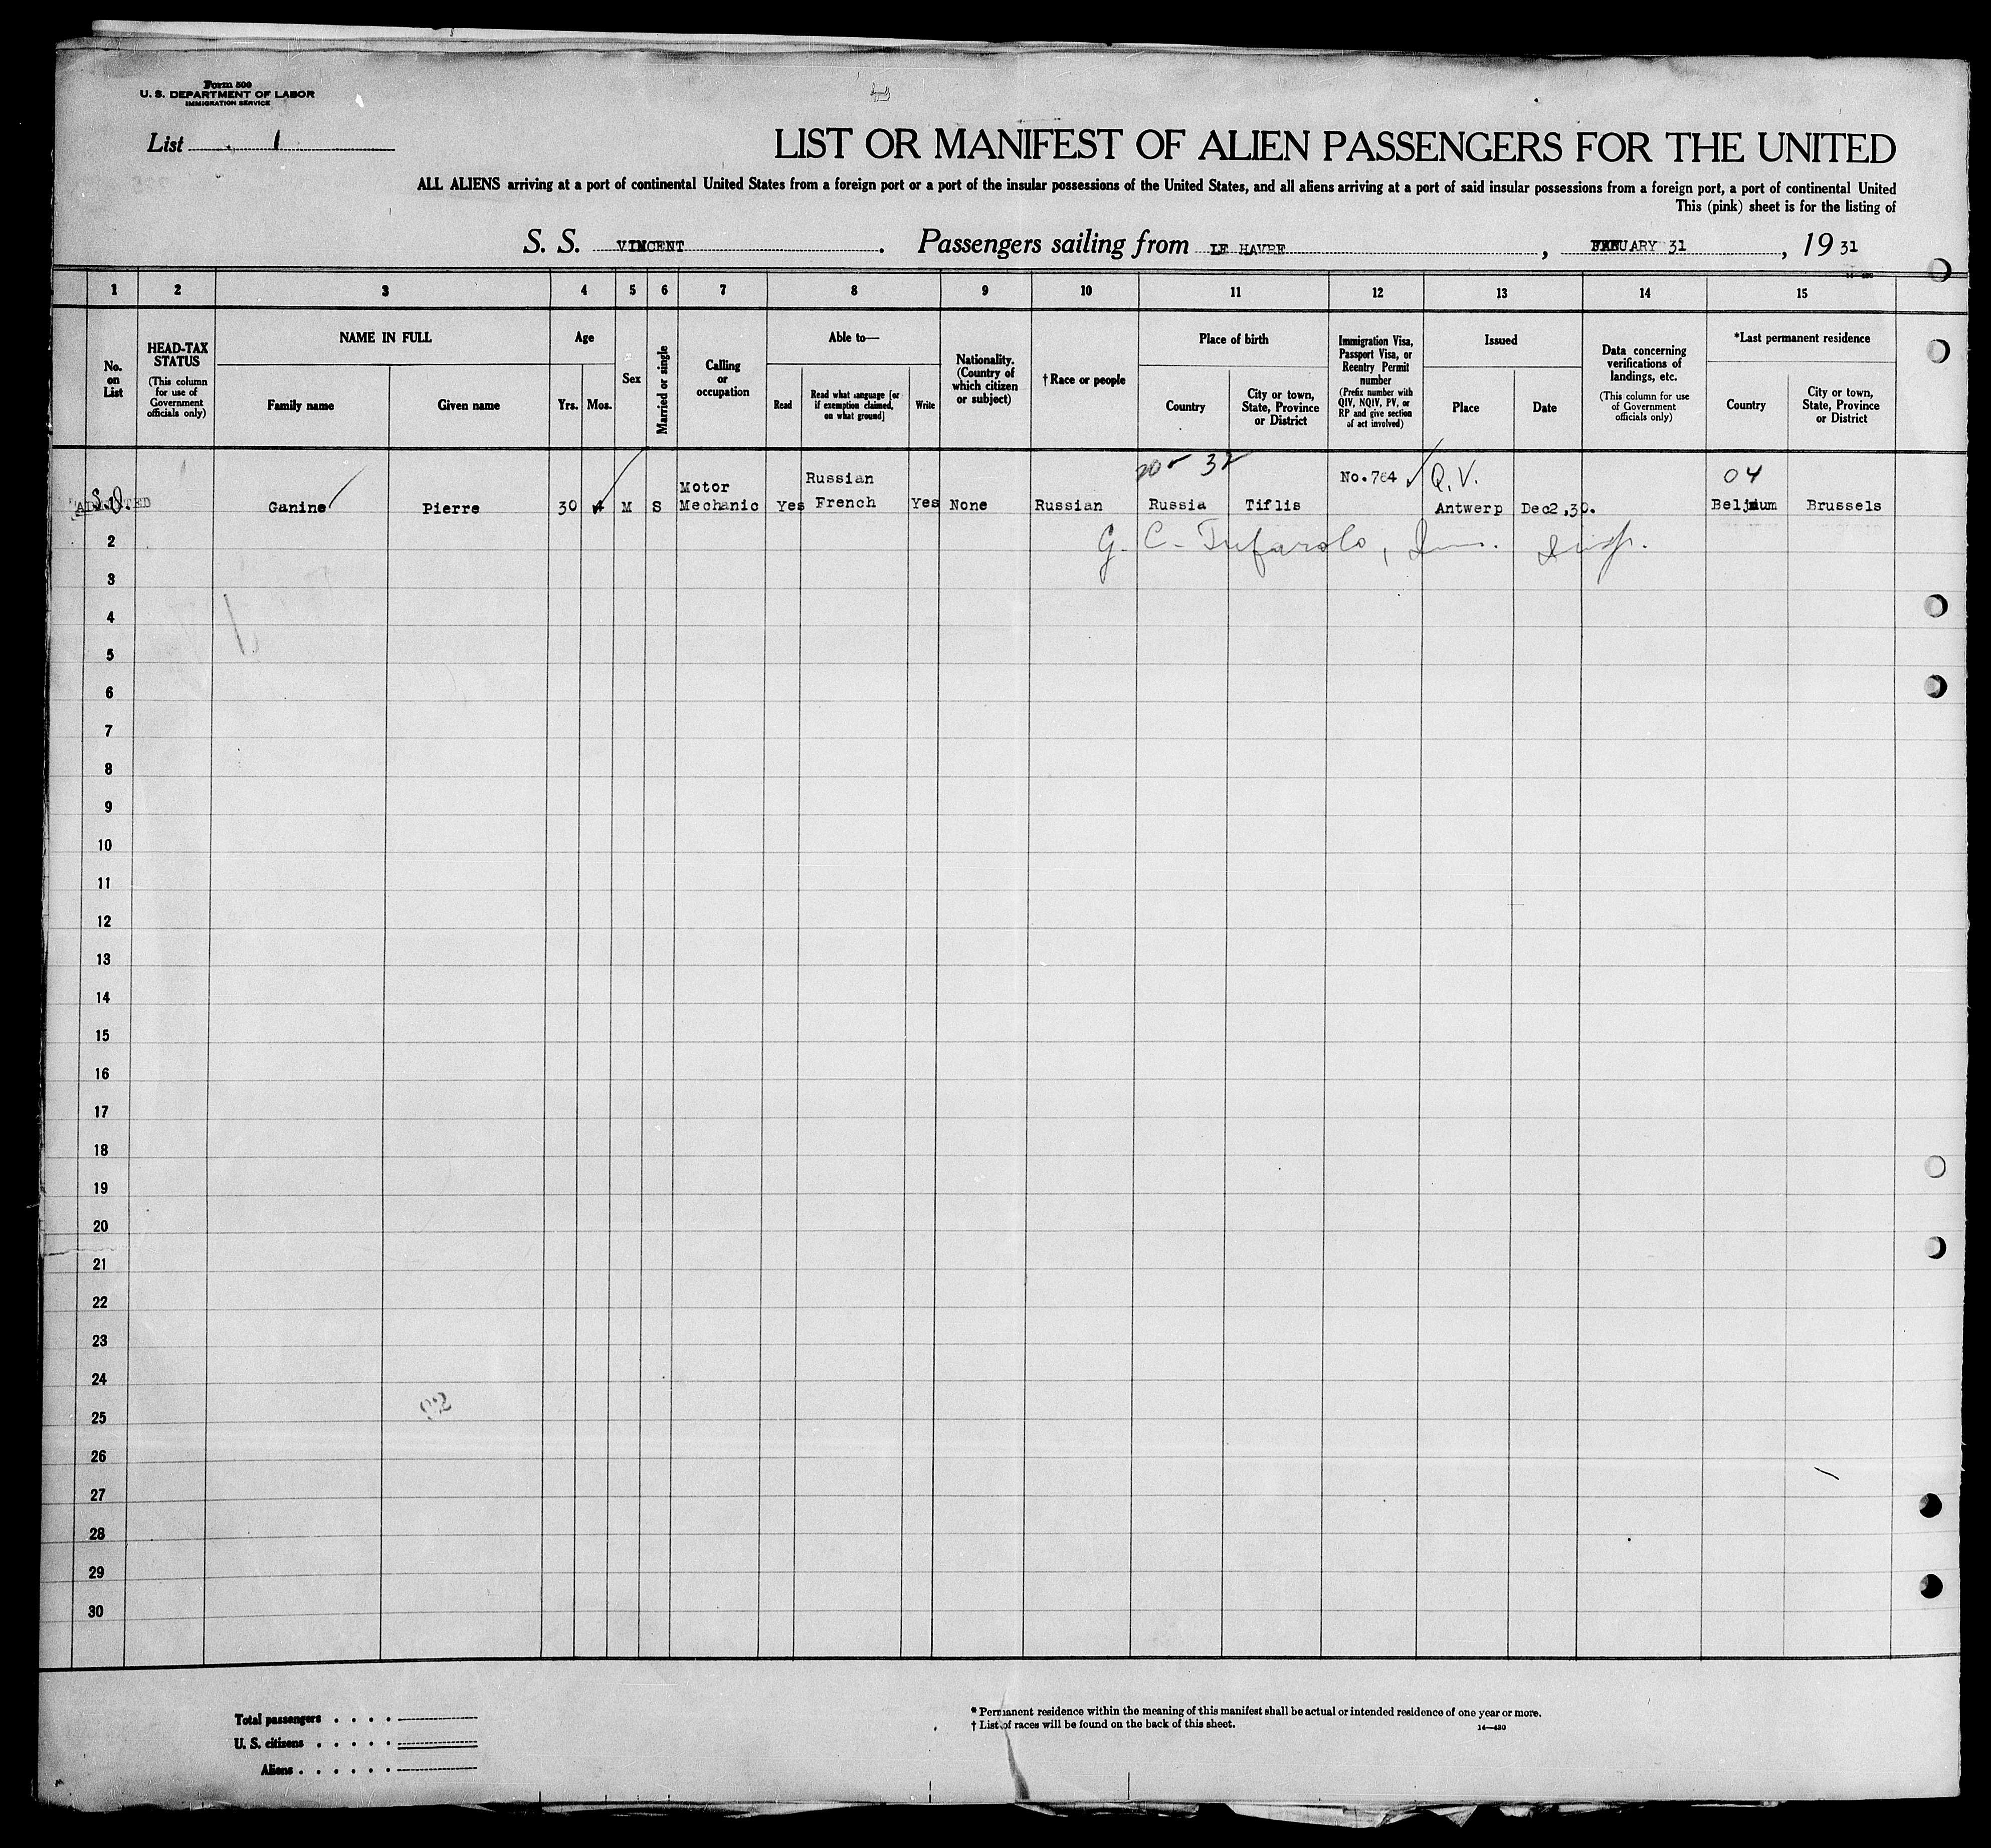 Form 500
U. S. DEPARTMENT OF LABOR
IMMIGRATION SERVICE
List 1
LIST OR MANIFEST OF ALIEN PASSENGERS FOR THE UNITED
ALL ALIENS arriving at a port of continental United States from a foreign port or a port of the insular possessions of the United States, and all aliens arriving at a port of said insular possessions from a foreign port, a port of continental United
This (pink) sheet is for the listing of
S. S. VINCENT. Passengers sailing from LE HAVRE, JANUARY 31, 19 31
1 2 3 4 5 6 7 8 9 10 11 12 13 14 15
No. on List
HEAD-TAX STATUS
(This column for use of Government officials only)
NAME IN FULL
Family name
Given name
Age
Yrs.
Mos.
Sex
Married or single
Calling or occupation
Able to—
Read
Read what language [or if exemption claimed, on what ground]
Write
Nationality. (Country of which citizen or subject)
† Race or people
Place of birth
Country
City or town, State, Province or District
Immigration Visa, Passport Visa, or Reentry Permit number
(Prefix number with QIV, NQIV, PV, or RP and give section of act involved)
Issued
Place
Date
Data concerning verifications of landings, etc.
(This column for use of Government officials only)
*Last permanent residence
Country
City or town, State, Province or District
32 No.764 Q.V. 04
ADMITTED 1 Ganine Pierre 30 4 M S Motor Mechanic Yes Russian French Yes None Russian Russia Tiflis Antwerp Dec2,30. Beljium Brussels
G. C. Tufarolo, Im. Insp.
2
3
4
5
6
7
8
9
10
11
12
13
14
15
16
17
18
19
20
21
22
23
24
25
26
27
28
29
30
Total passengers . . . .
U. S. citizens . . . . .
Aliens . . . . . .
* Permanent residence within the meaning of this manifest shall be actual or intended residence of one year or more.
† List of races will be found on the back of this sheet.
14—430